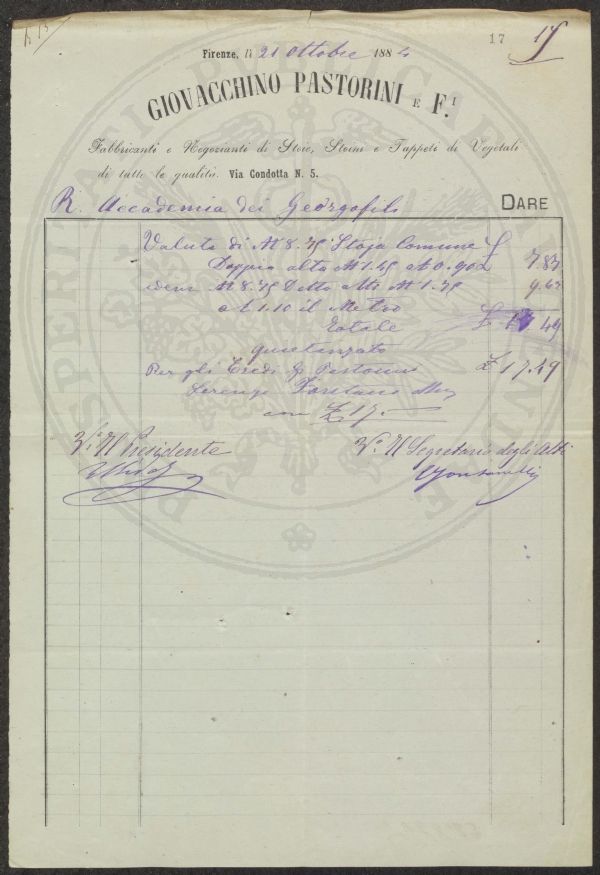 17 17
Firenze, li 21 Ottobre 1884
GIOVACCHINO PASTORINI E F.I
Fabbricanti e Negozianti di Stoie, Stoini e Tappeti di Vegetali
di tutte le qualità. Via Condotta N. 5.
R. Accademia dei Georgofili DARE
Valuta di M 8.75 Stoja Comune £
Doppia alta M 1.45 a 0.90 7.87
M 8.75 Detto Alto M 1.75 9.62
A 1.10 il Metro
Totale £ 17.49
quietanzato
Per gli Eredi G Pastorini £ 17.49
Lorenzo
con £ 17.-
V.o Il Presidente V.o Il Segretario degli Atti